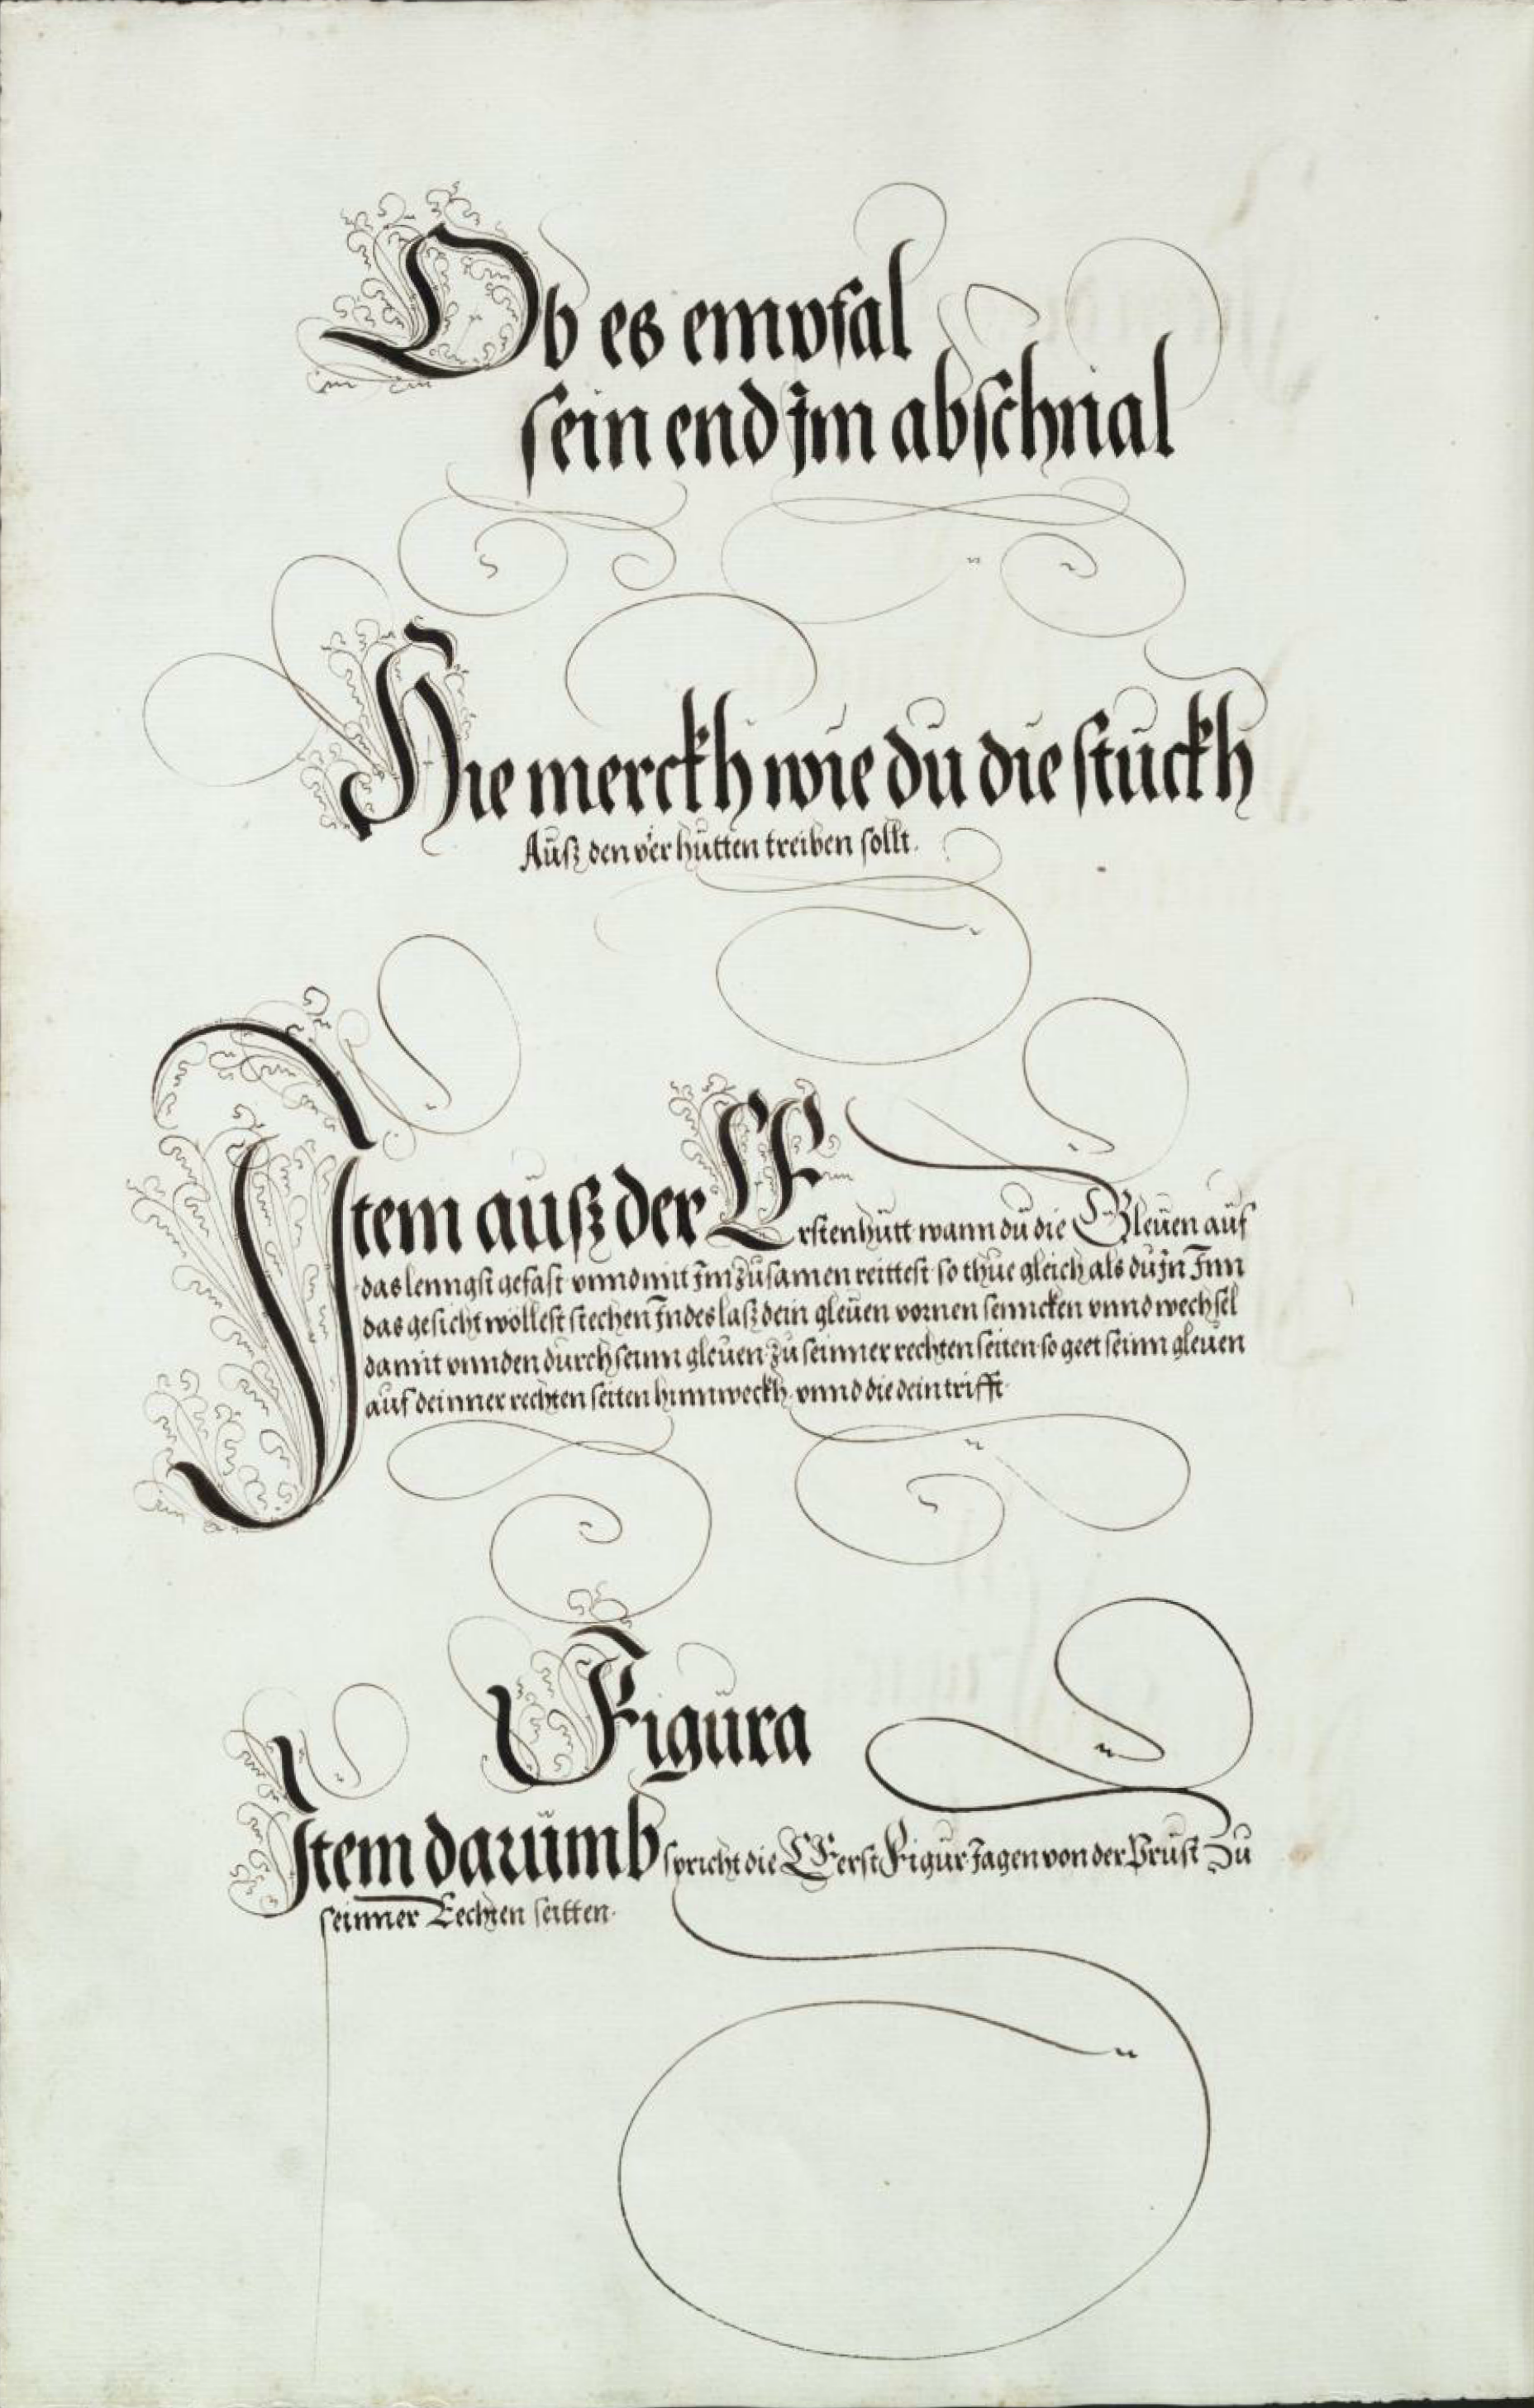 Ob es empfal
sein end jm abschnial
Hie merckh wie du die stuckh
Auß den vier hutten treiben sollt.
Item auß der Ersten hutt wann du die Gleuen auf
das lenngst gefast vnnd mit Im zusamen reittest so thue gleich als du In Inn
das gesicht wöllest stechen Indes laß dein gleuen vornen senncken vnnd wechsel
damit vnnden durch seinn gleuen zu seinner rechten seiten so geet seinn gleuen
auf deinner rechten seiten hinnweckh vnnd die dein trifft.
Figura
Item darumb spricht die Erst Figur Jagen von der Prust Zu
seinner Rechten seitten.